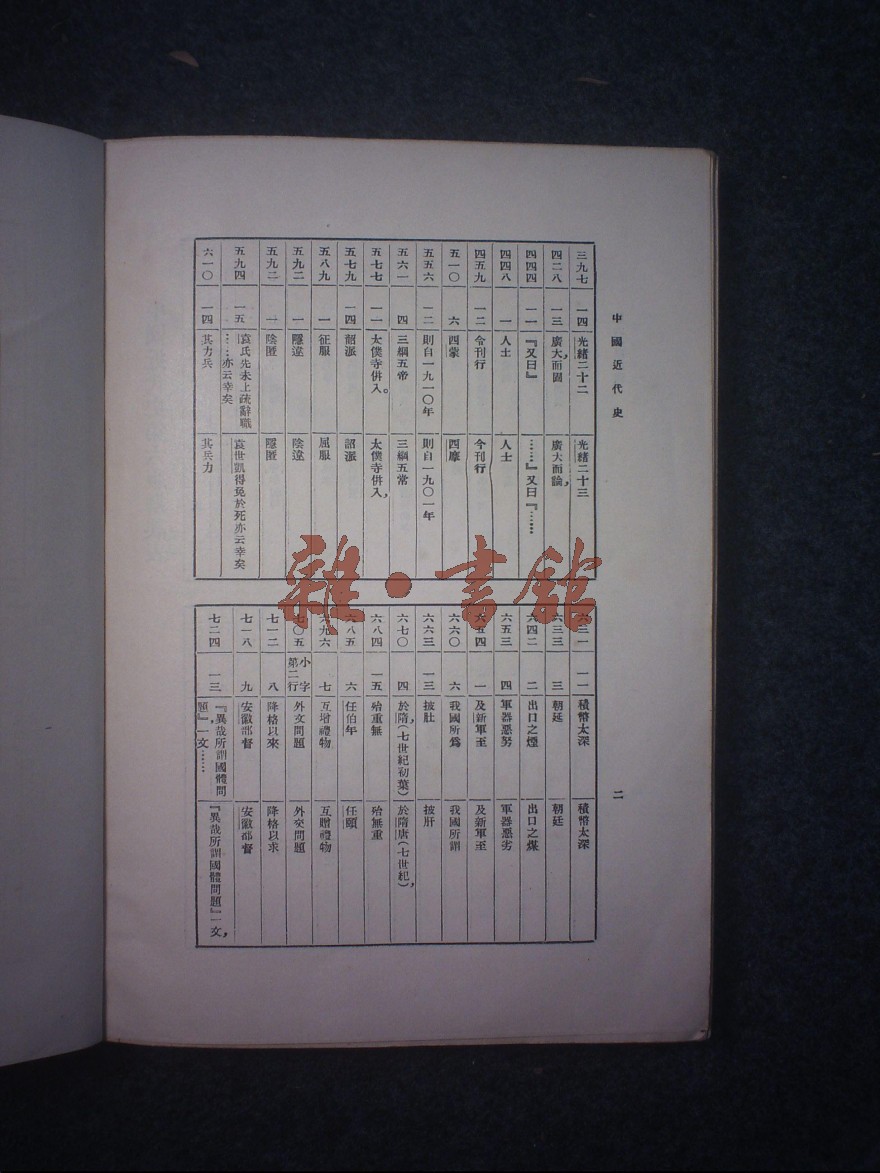 中國近代史
二
三九七 一四 光緒二十二 光緒二十三
四二八 一三 廣大而圖 廣大而論，
四四四 一一 『又曰』 ……』又曰『……
四四八 一 人士 人士
四五九 一二 令刊行 今刊行
五一〇 六 四蒙 四摩
五五六 一二 則自一九一〇年 則自一九〇一年
五六一 四 三綱五帝 三綱五常
五七七 一一 太僕寺併入。 太僕寺併入，
五七九 一四 韶派 詔派
五八九 一 征服 屈服
五九二 一 隱違 陰違
五九二 一 陰匿 隱匿
五九四 一五 袁氏先未上疏辭職……亦云幸矣 袁世凱得免於死亦云幸矣
六一〇 一四 其力兵 其兵力
六三一 一一 積幣太深 積幣太深
六三三 三 朝廷 朝廷
六四二 二 出口之煙 出口之煤
六五三 四 軍器惡努 軍器惡劣
六五四 一 及新軍至 及新軍至
六六〇 六 我國所爲 我國所謂
六六三 一三 披肚 披肝
六七〇 四 於隋，（七世紀初葉） 於隋唐（七世紀），
六八四 一五 殆重無 殆無重
六八五 六 任伯年 任頤
六九六 七 互增禮物 互贈禮物
七〇五 小字第二行 外文問題 外交問題
七一二 八 降格以來 降格以求
七一八 九 安徽部督 安徽都督
七二四 一三 『異哉所謂國體問題』，一文…… 『異哉所謂國體問題』一文，
雜·書館